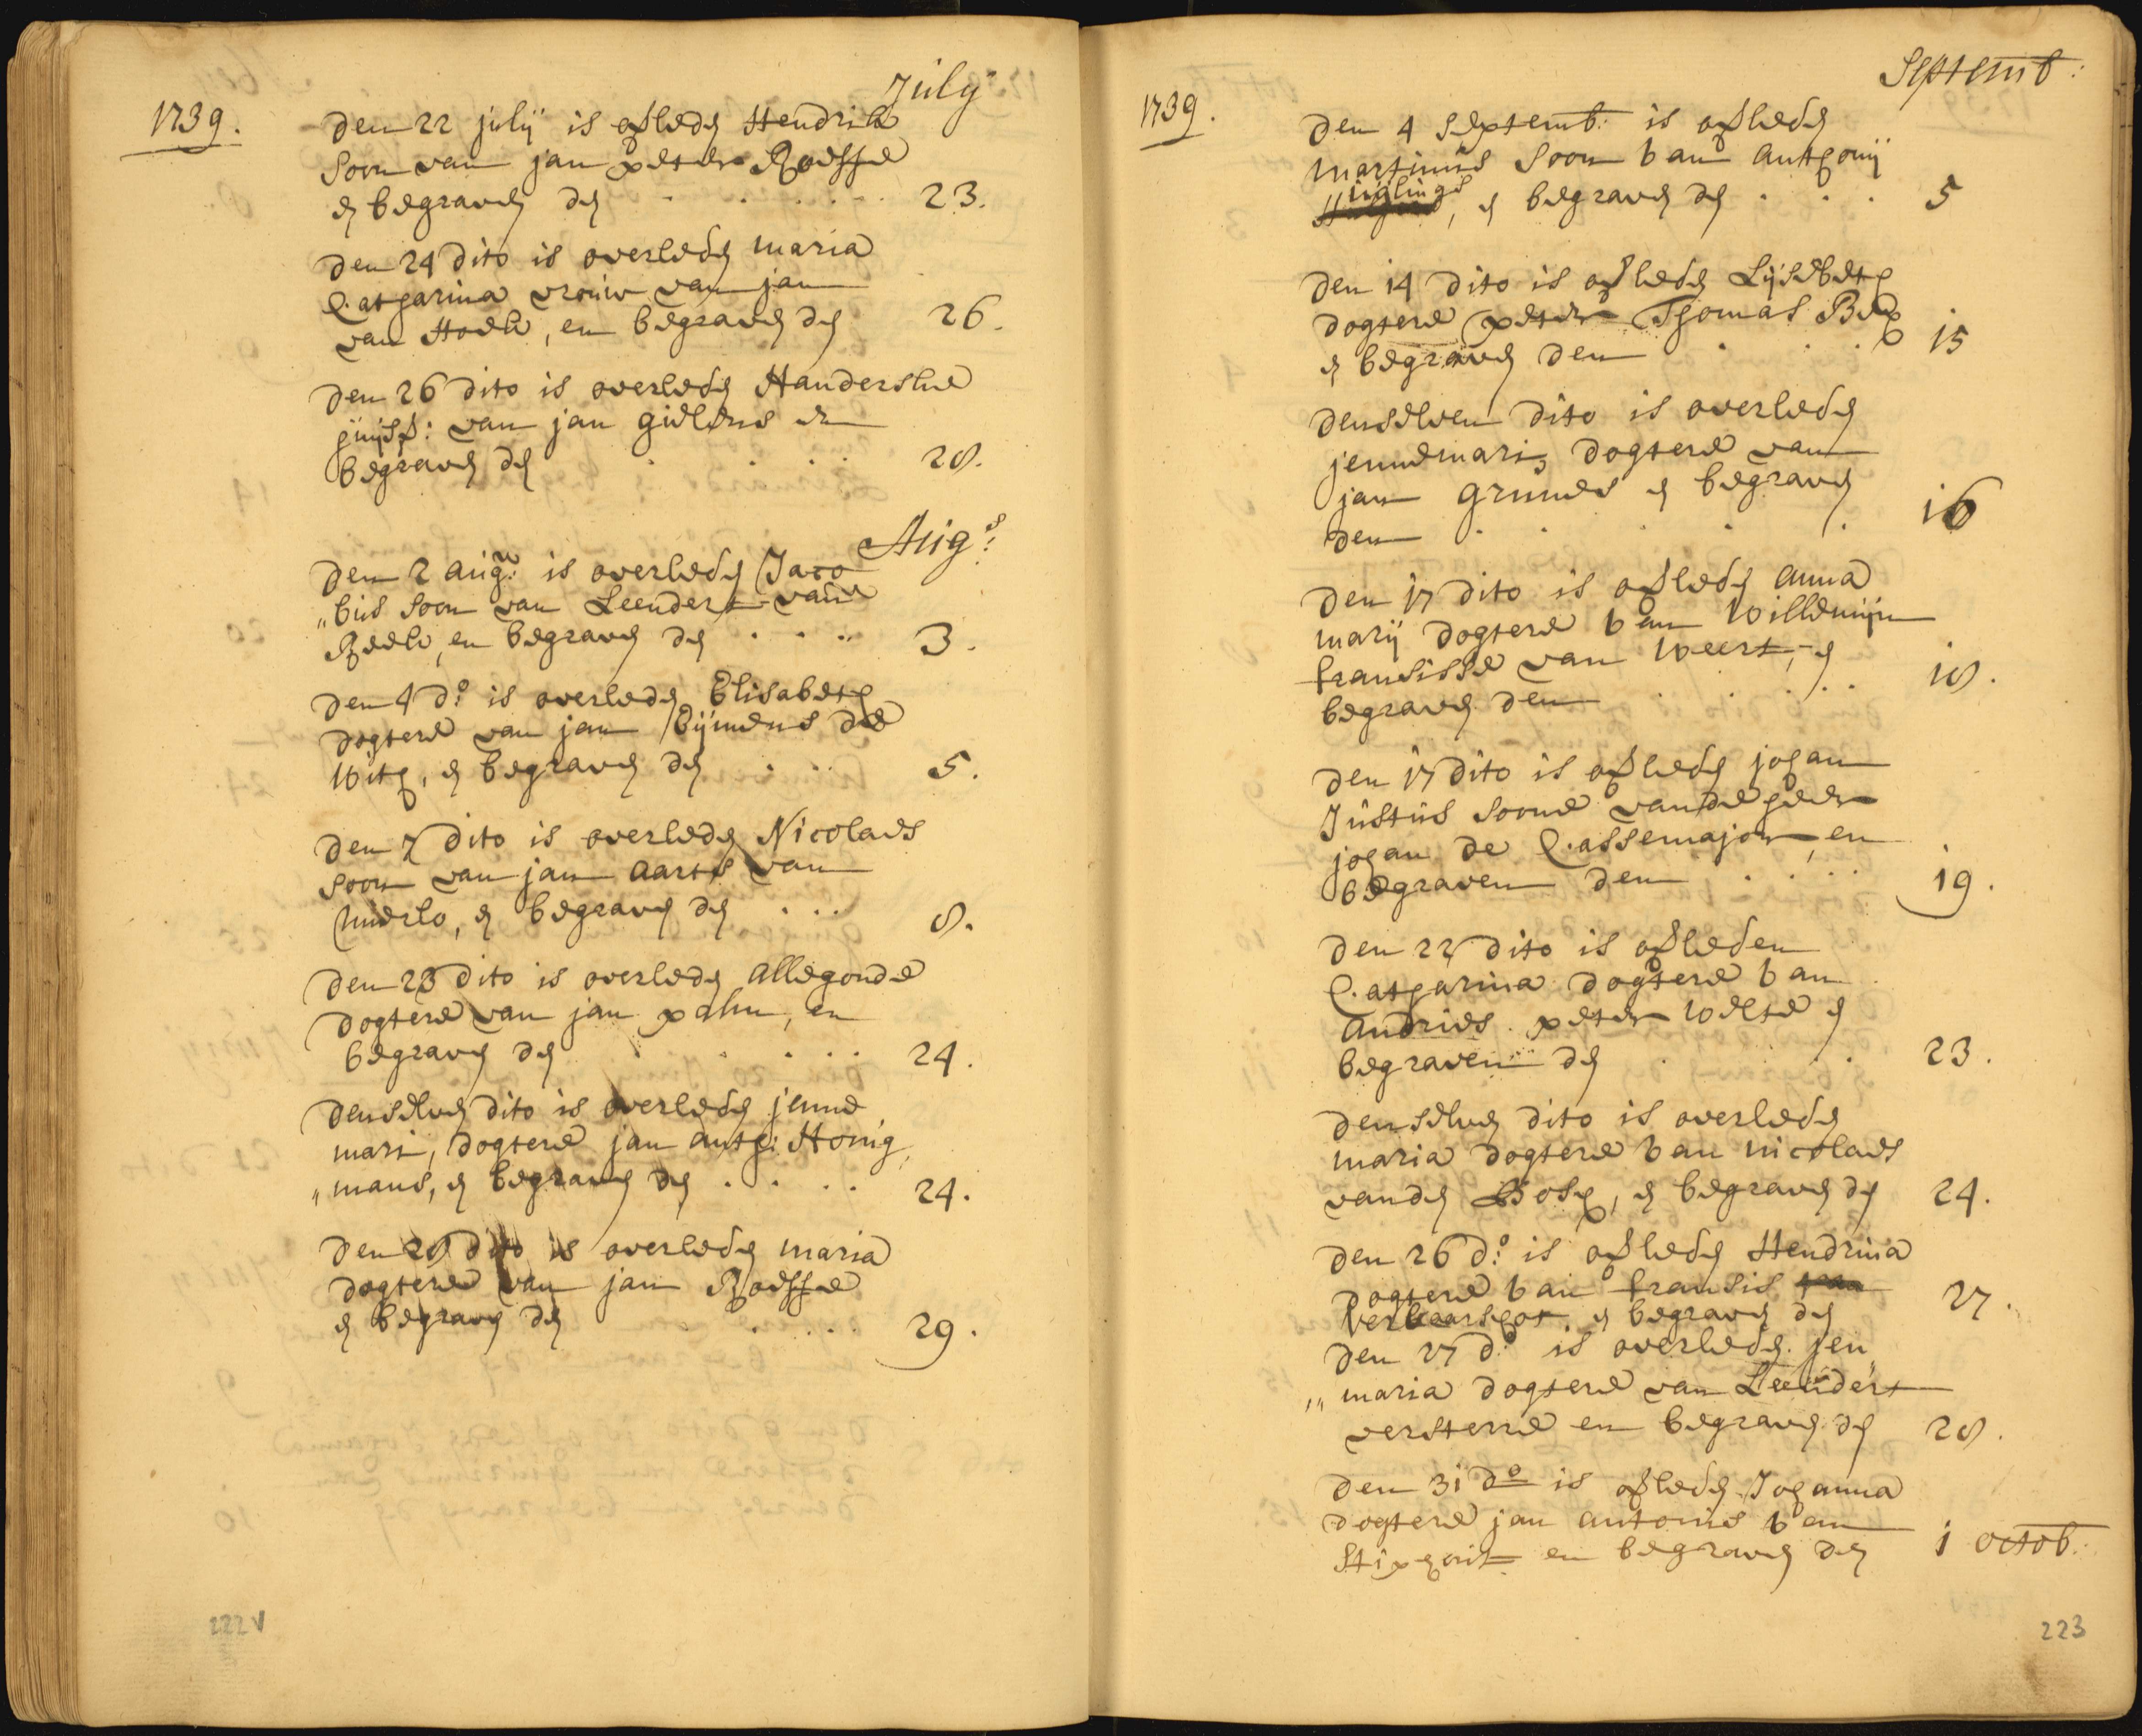 July
1739.
Den 22 julij is ofleden Hendrik
Soon van jan peter Roesse
en begraven den . . . . . . 23.
Den 24 dito is overleden maria
Catharina vrouw van jan
van Hoek, en begraven den 26.
Den 26 dito is overleden Handerske
huijsv: van jan gielens en
begraven den . . . . 28.
Aug:s
Den 2 aug: is overleden Jaco
„bus soon van Leendert van
Beek, en begraven den . . . . 3.
Den 4 d:o is overleden Elisabeth
dogtere van jan Cijmens de
With, en begraven den . . . 5.
Den 7 dito is overleden Nicolaes
soon van jan Aarts van
Mierlo, en begraven den . . . 8.
Den 23 dito is overleden allegonde
dogtere van jan palm, en
begraven den . . . . . 24.
denselven dito is overleden jenne
mari, dogtere jan anth: Honig
„mans, en begraven den . . . . 24.
Den 28 dito is overleden maria
dogtere van jan Roesse
en begraven den . . . . 29.
222v
Septemb:
1739.
Den 4 Septemb: is ofleden
martinus soon van anthonij
Huglings, en begraven den . . . 5
Den 14 dito is ofleden Lijsebeth
dogtere peter Thomas Bex
en begraven den . . . 15
denselven dito is overleden
jennemari, dogtere van
jan grunes en begraven
den . . . . 16
Den 17 dito is ofleden anna
marij dogtere van Willemijn
fransisse van Weert, en
begraven den . . . . 18.
Den 17 dito is ofleden johan
Justus soone van de heer
johan de Cassemajor, en
begraven den . . . . 19.
Den 22 dito is ofleden
Catharina dogtere van
andries peter Welte en
begraven den . . . 23.
denselven dito is overleden
maria dogtere van nicolaes
vanden Bosch, en begraven den 24.
Den 26 d:o is ofleden Hendrina
dogtere van fransis
Verkaarschot, en begraven den 27.
Den 27 d:o is overleden jen„
„maria dogtere van Leendert
versterre en begraven den 28.
Den 31 do is ofleden Johanna
dogtere jan antonis van
Stiphout en begraven den 1 octob:
223